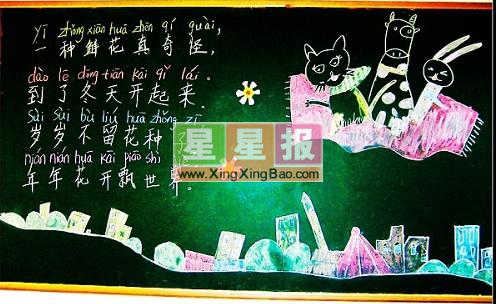 yī zhǒng xiān huā zhēn qí guài,
一种鲜花真奇怪,
dào le dōng tiān kāi qǐ lái.
到了冬天开起来.
suì suì bù liú huā zhǒng zǐ
岁岁不留花种
nián nián huā kāi piāo shì
年年花开飘世界。
星星报
www.XingXingBao.com